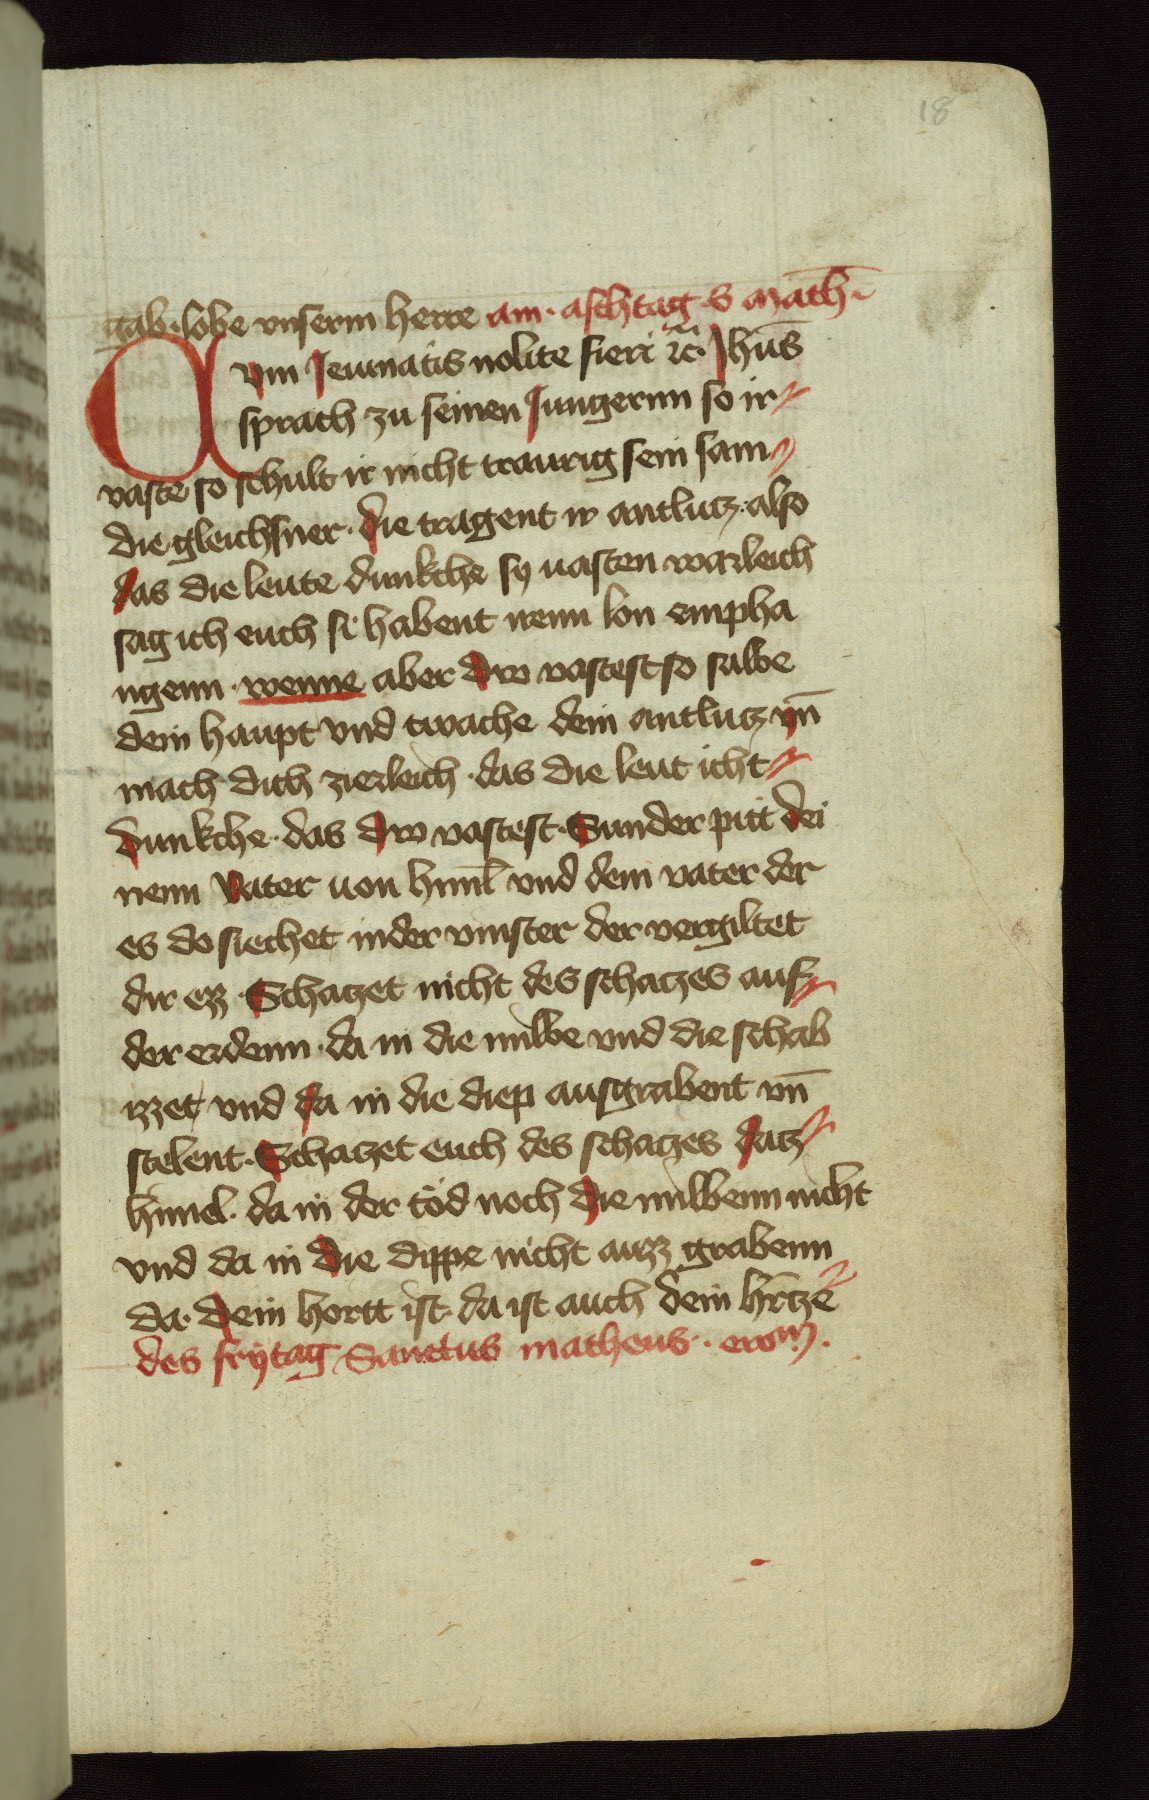 18
gab·lobe vnserm herre am· aschtag· S math̄·
Cvm Jeiunatis nolite fieri ⁊c̄· Jhūs
sprach zu seinen Jungernn so ir
vaste so schult ir nicht traurig sein sam
die gleichsner· die tragent ir antlutz· also
das die leute dunkche sy uasten warleich
sag ich euch si habent irenn lon empha
ngenn· wenne aber Dw vastest so salbe
dein haupt vnd twache dein antlutz vn̄
mach dich zierleich· das die leut icht
dunkche· das Dw vastest· Sunder pitt dei
nenn Vater uon himl̄ vnd dem vater der
es do siechet in der vinster der vergiltet
dir ez· Schatzet nicht des schatzes auf
der erdenn· da in die milbe vnd die schab
izzet vnd da in die diep ausgrabent vn̄
stelent· Schatzet euch des schatzes datz
himel· da in der töd noch die milbenn nicht
vnd da in die dippe nicht auzz grabenn
da· dein hortt ist· da ist auch dein hr̄tze
des frÿtag Sanctus matheus·